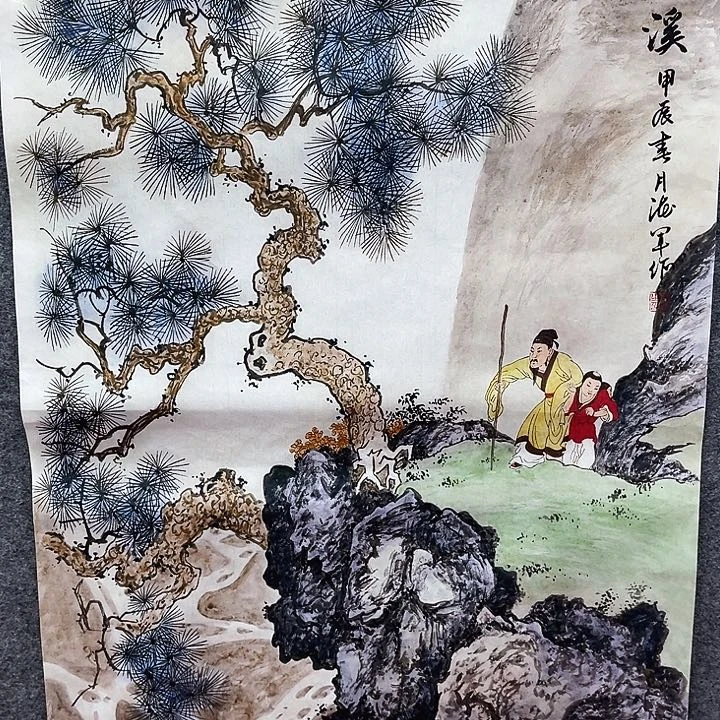 溪
甲辰春月海军作